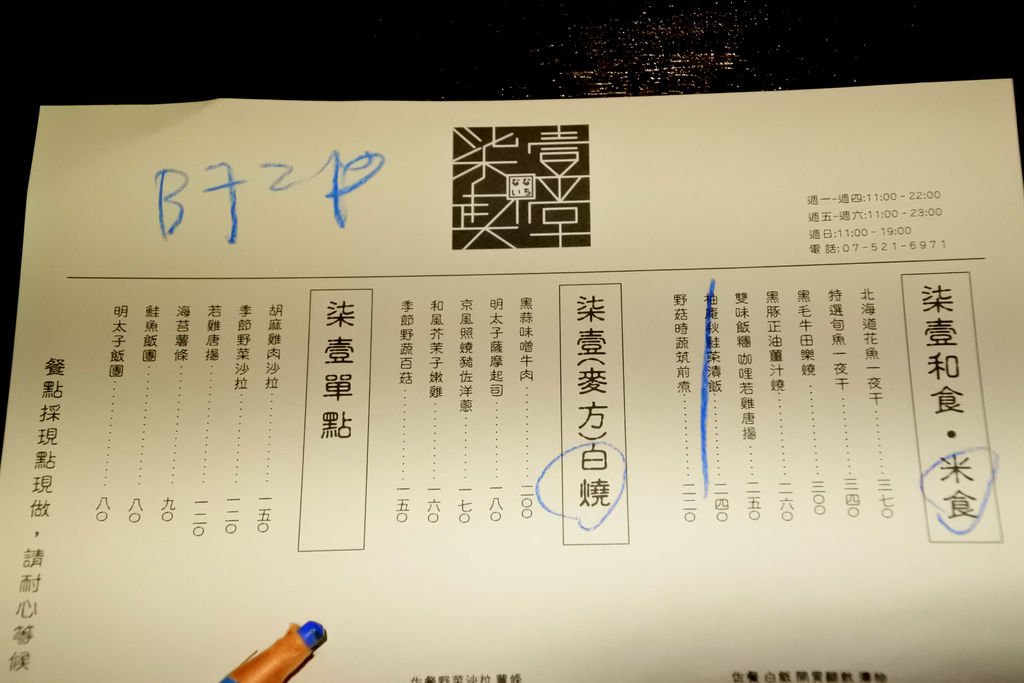 柒壹
食堂
なな
いち
週一-週四:11:00-22:00
週五-週六:11:00-23:00
週日:11:00-19:00
電話:07-521-6971
柒壹和食・米食
北海道花魚一夜干............三七〇
特選旬魚一夜干............三四〇
黑毛牛田樂燒............三〇〇
黑豚正油薑汁燒............二六〇
雙味飯糰 咖哩若雞唐揚......二五〇
柚庵秋鮭茶漬飯............二四〇
野菇時蔬筑前煮............二二〇
柒壹(麥方)白燒
黑蒜味噌牛肉............二〇〇
明太子薩摩起司............一八〇
京風照燒豬佐洋蔥............一七〇
和風芥茉子嫩雞............一六〇
季節野蔬百菇............一五〇
柒壹單點
胡麻雞肉沙拉............一五〇
季節野菜沙拉............一二〇
若雞唐揚............一二〇
海苔薯條............九〇
鮭魚飯團............八〇
明太子飯團............八〇
餐點採現點現做,請耐心等候
佐餐野菜沙拉 薯條